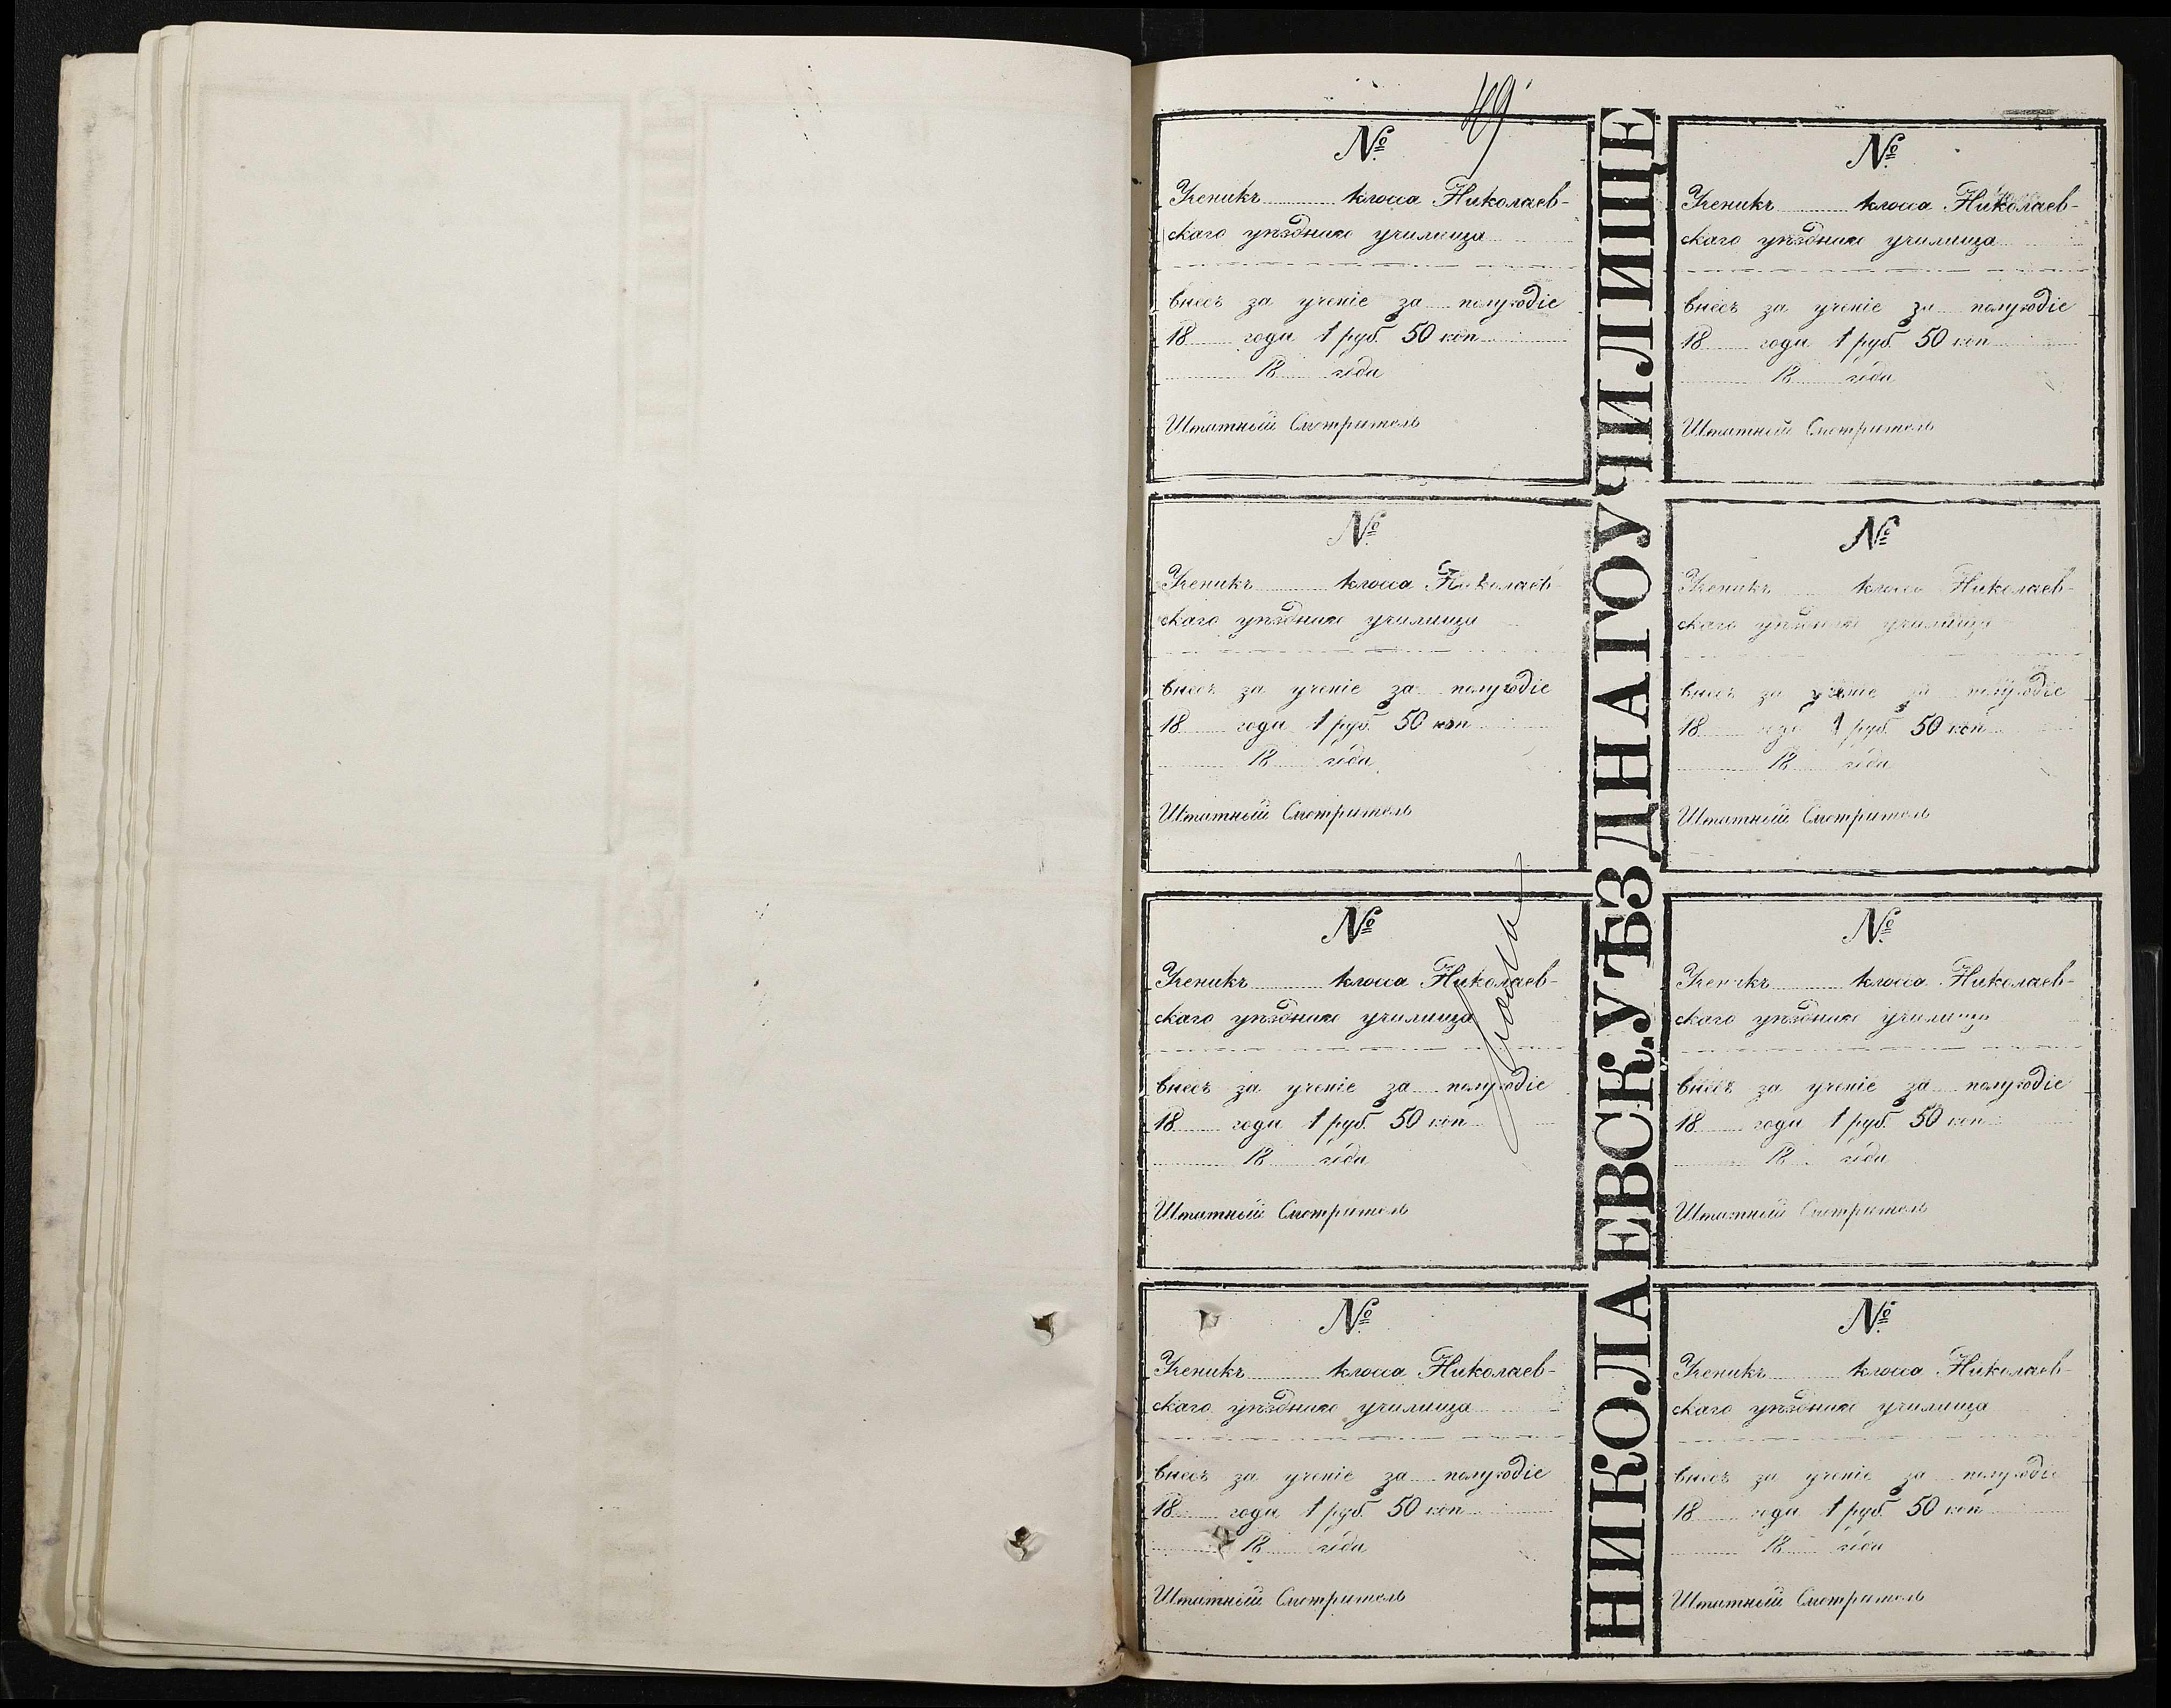 49
№
Ученикъ класса Николаев-
скаго уѣзднаго училища
внесъ за ученіе за полугодіе
18 года 1 руб. 50 коп
18 года
Штатный Смотритель
№
Ученикъ класса Николаев-
скаго уѣзднаго училища
внесъ за ученіе за полугодіе
18 года 1 руб. 50 коп
18 года
Штатный Смотритель
№
Ученикъ класса Николаев-
скаго уѣзднаго училища
внесъ за ученіе за полугодіе
18 года 1 руб. 50 коп
18 года
Штатный Смотритель
№
Ученикъ класса Николаев-
скаго уѣзднаго училища
внесъ за ученіе за полугодіе
18 года 1 руб. 50 коп
18 года
Штатный Смотритель
НИКОЛАЕВСК. УѢЗДНАГО УЧИЛИЩЕ
№
Ученикъ класса Николаев-
скаго уѣзднаго училища
внесъ за ученіе за полугодіе
18 года 1 руб. 50 коп
18 года
Штатный Смотритель
№
Ученикъ класса Николаев-
скаго уѣзднаго училища
внесъ за ученіе за полугодіе
18 года 1 руб. 50 коп
18 года
Штатный Смотритель
№
Ученикъ класса Николаев-
скаго уѣзднаго училища
внесъ за ученіе за полугодіе
18 года 1 руб. 50 коп
18 года
Штатный Смотритель
№
Ученикъ класса Николаев-
скаго уѣзднаго училища
внесъ за ученіе за полугодіе
18 года 1 руб. 50 коп
18 года
Штатный Смотритель